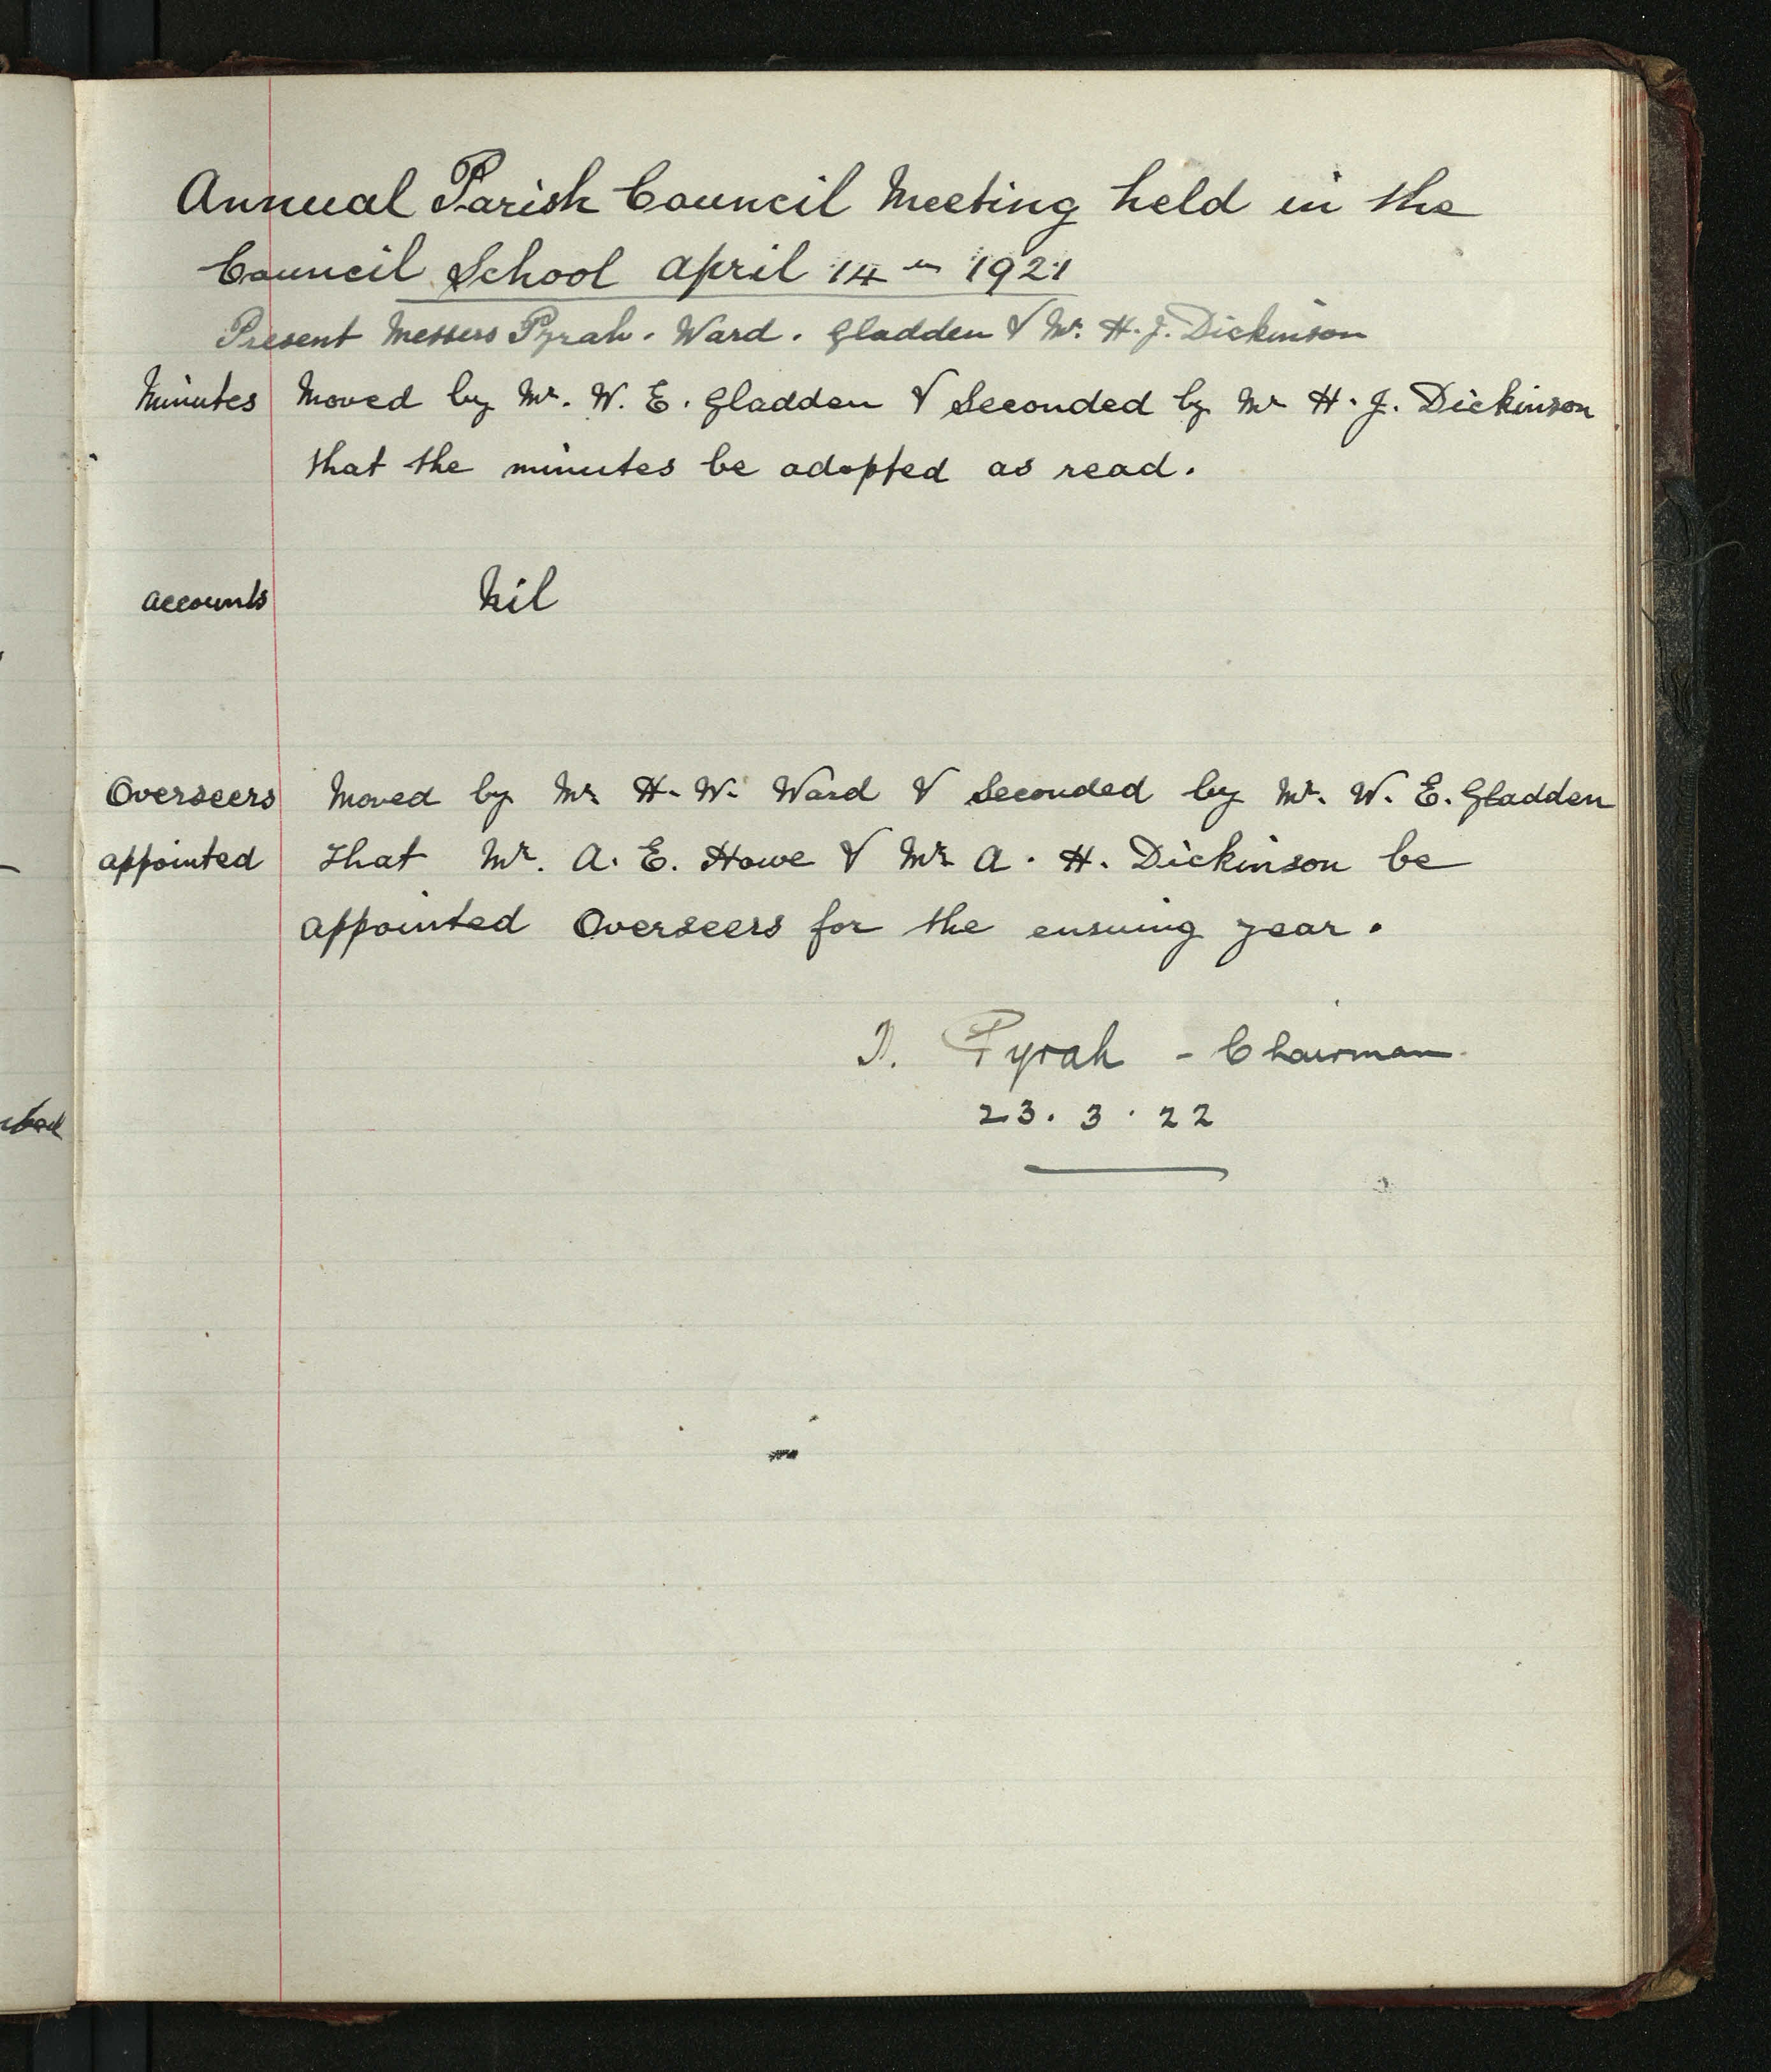 Annual Parish Council Meeting held in the
Council School April 14th 1921
Present Messers Pyrah. Ward. Gladden & Mr. H. J. Dickinson
Minutes Moved by Mr. W. E. Gladden & Seconded by Mr H. J. Dickinson
that the minutes be adopted as read.
Accounts Nil
Overseers Moved by Mr H. W. Ward & Seconded by Mr. W. E. Gladden
appointed that Mr. A. E. Howe & Mr A. H. Dickinson be
appointed Overseers for the ensuing year.
Pyrah - Chairman
23. 3. 22